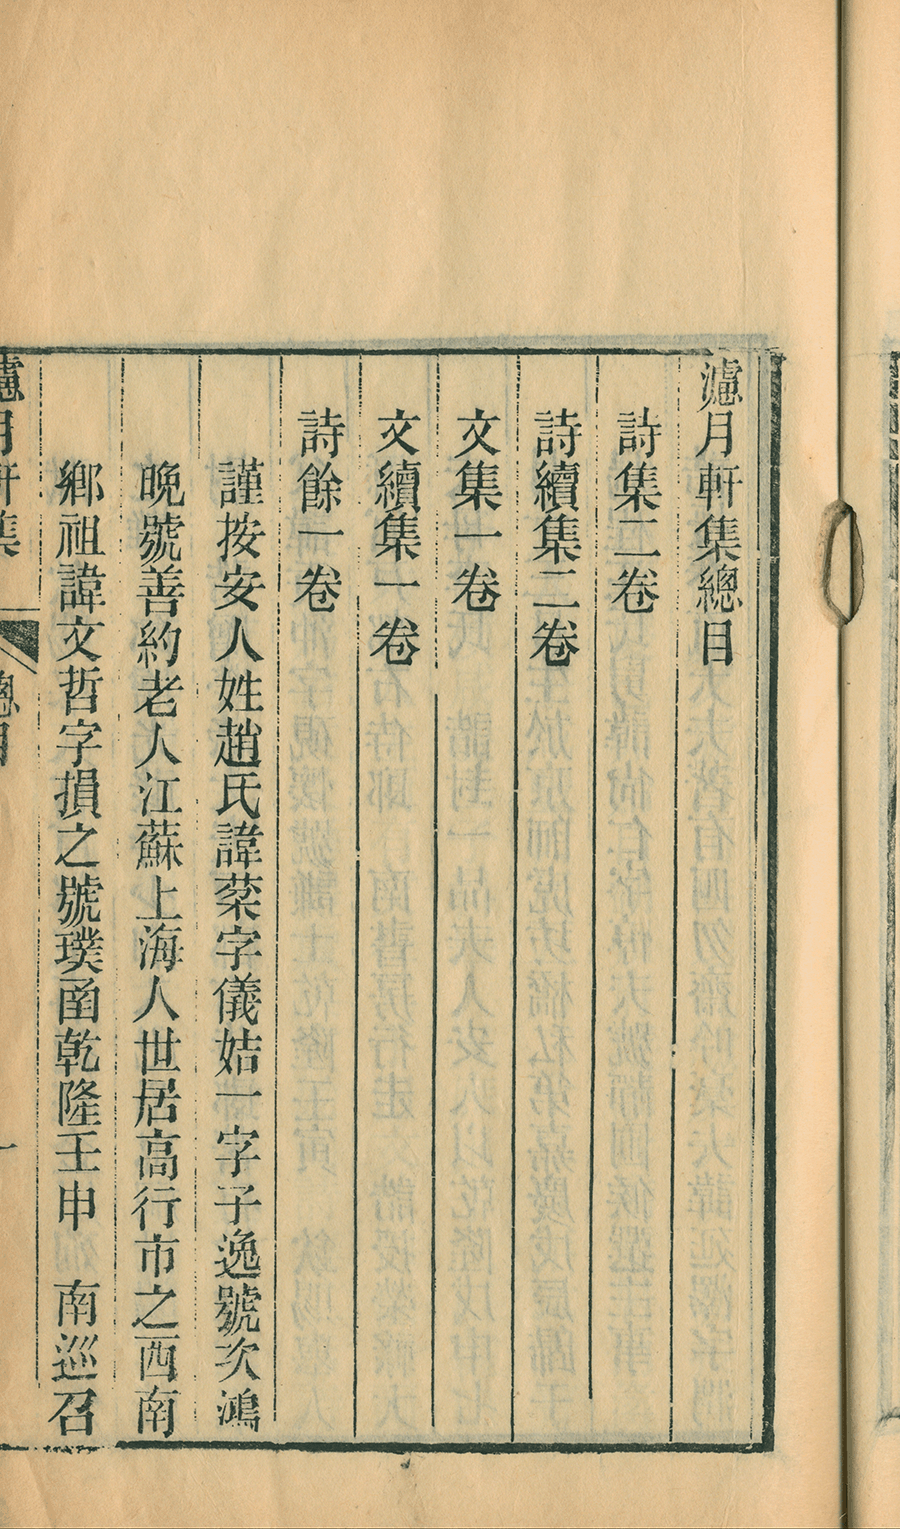 濾月軒集總目
詩集二卷
詩續集二卷
文集一卷
文續集一卷
詩餘一卷
謹按安人姓趙氏諱棻字儀姞一字子逸號次鴻
晚號善約老人江蘇上海人世居高行市之西南
鄉祖諱文哲字損之號璞函乾隆壬申 南巡召
濾月軒集 總目 一